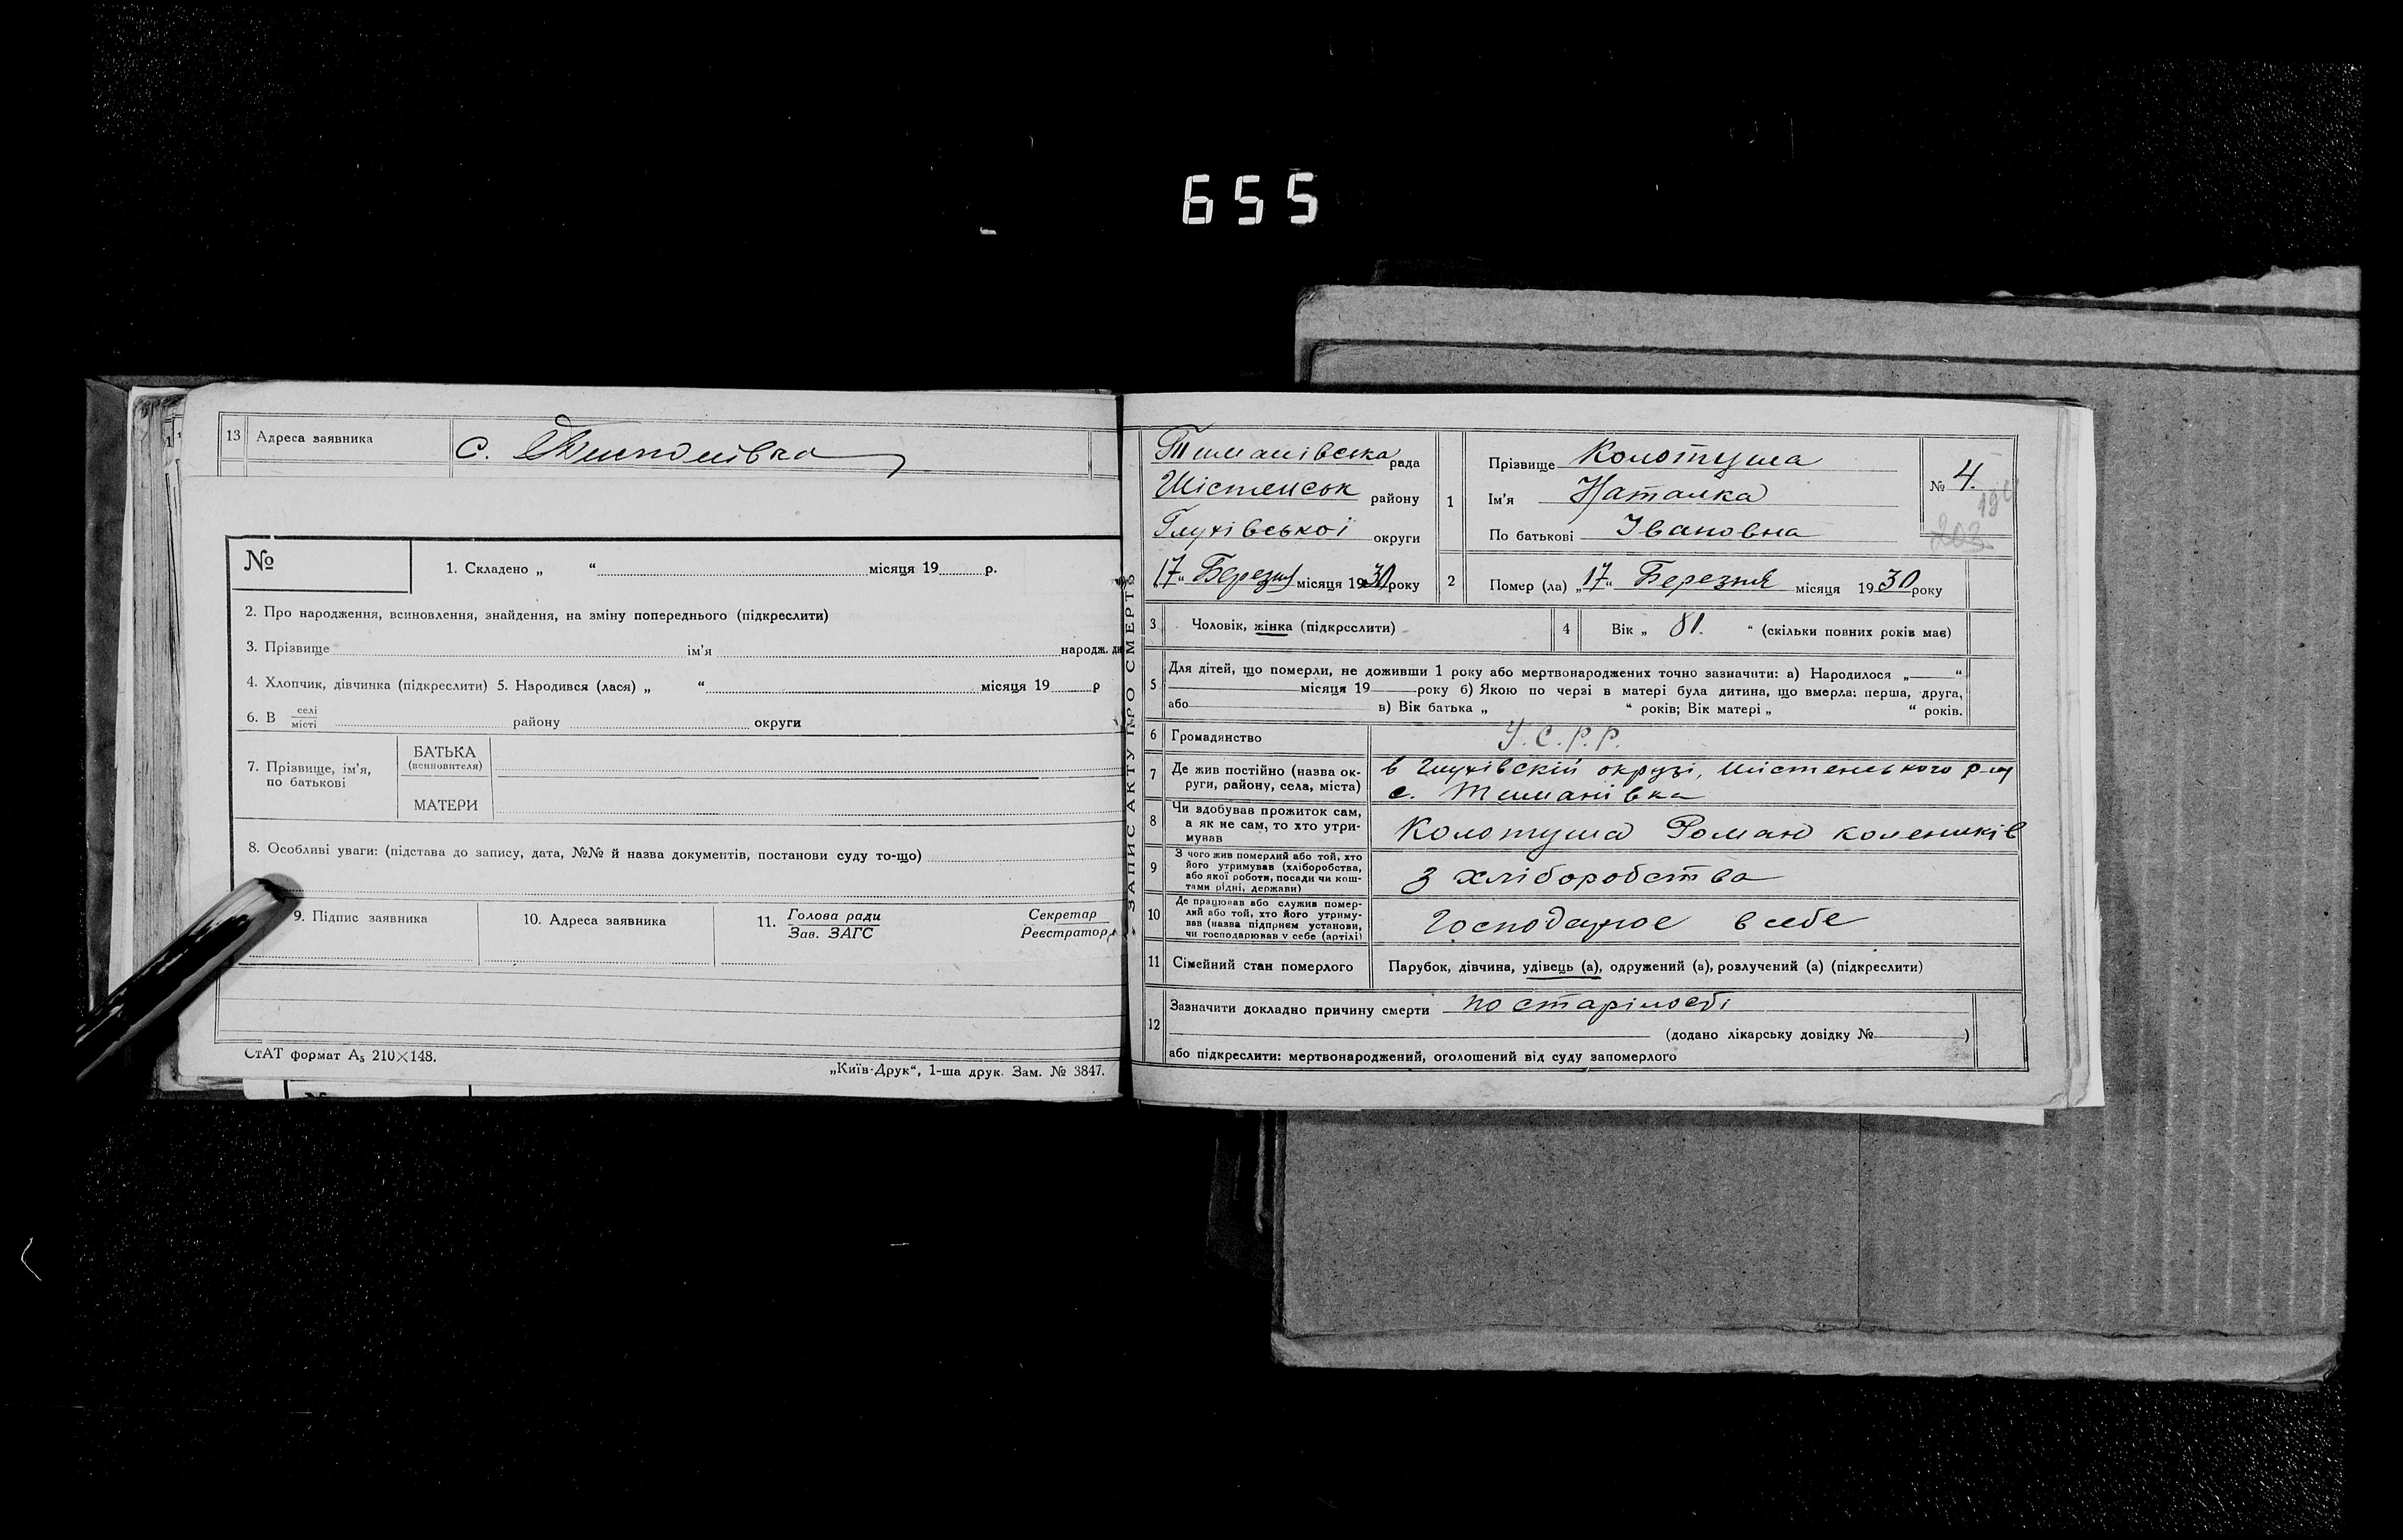 655
13 Адреса заявника
с.
№
1. Складено „ “ місяця 19 р.
2. Про народження, всиновлення, знайдення, на зміну попереднього (підкреслити)
3. Прізвище ім'я народж. ди
4. Хлопчик, дівчинка (підкреслити) 5. Народився (лася) „ “ місяця 19 р
6. В селі
місті району округи
7. Прізвище, ім'я,
по батькові
БАТЬКА
(всиновителя)
МАТЕРИ
8. Особливі уваги: (підстава до запису, дата, №№ й назва документів, постанови суду то-що)
9. Підпис заявника
10. Адреса заявника
11. Голова ради
Зав. ЗАГС
Секретар
Реєстратор
СтАТ формат А₅ 210×148.
„Київ-Друк“, 1-ша друк. Зам. № 3847.
ЗАПИС АКТУ ПРО СМЕРТЬ
Тиманівська рада
Шістенськ району
Глухівської округи
17 “ Березня місяця 1930 року
1
Прізвище Колотуша
Ім'я Наталка
По батькові Івановна
№ 4.
202
2 Помер (ла) „17“ Березня місяця 1930 року
3 Чоловік, жінка (підкреслити)
4 Вік „ 81. “ (скільки повних років має)
5 Для дітей, що померли, не доживши 1 року або мертвонароджених точно зазначити: а) Народилося „ “
місяця 19 року б) Якою по черзі в матері була дитина, що вмерла: перша, друга,
або в) Вік батька „ “ років; Вік матері „ “ років.
6 Громадянство У.С.Р.Р.
7 Де жив постійно (назва ок-
руги, району, села, міста)
в Глухівскій окрузі, Шістенського р-ну
с. Тиманівка
8 Чи здобував прожиток сам,
а як не сам, то хто утри-
мував
Колотуша Роман
9 З чого жив померлий або той, хто
його утримував (хліборобства,
або якої роботи, посади чи кош-
тами рідні, держави)
З хліборобства
10 Де працював або служив помер-
лий або той, хто його утриму-
вав (назва підприєм установи,
чи господарював у себе (артілі)
Господарює в себе
11 Сімейний стан померлого
Парубок, дівчина, удівець (а), одружений (а), розлучений (а) (підкреслити)
12 Зазначити докладно причину смерти по старілості
(додано лікарську довідку № )
або підкреслити: мертвонароджений, оголошений від суду запомерлого